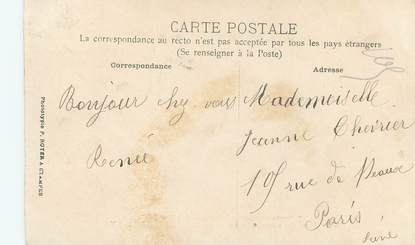 CARTE POSTALE
La correspondance au recto n'est pas acceptée par tous les pays étrangers
(Se renseigner à la Poste)
Correspondance
Adresse
Bonjour chez vous
Renée
Mademoiselle
Jeanne Chevrier
rue de
Paris
Phototypie P. ROYER à ETAMPES